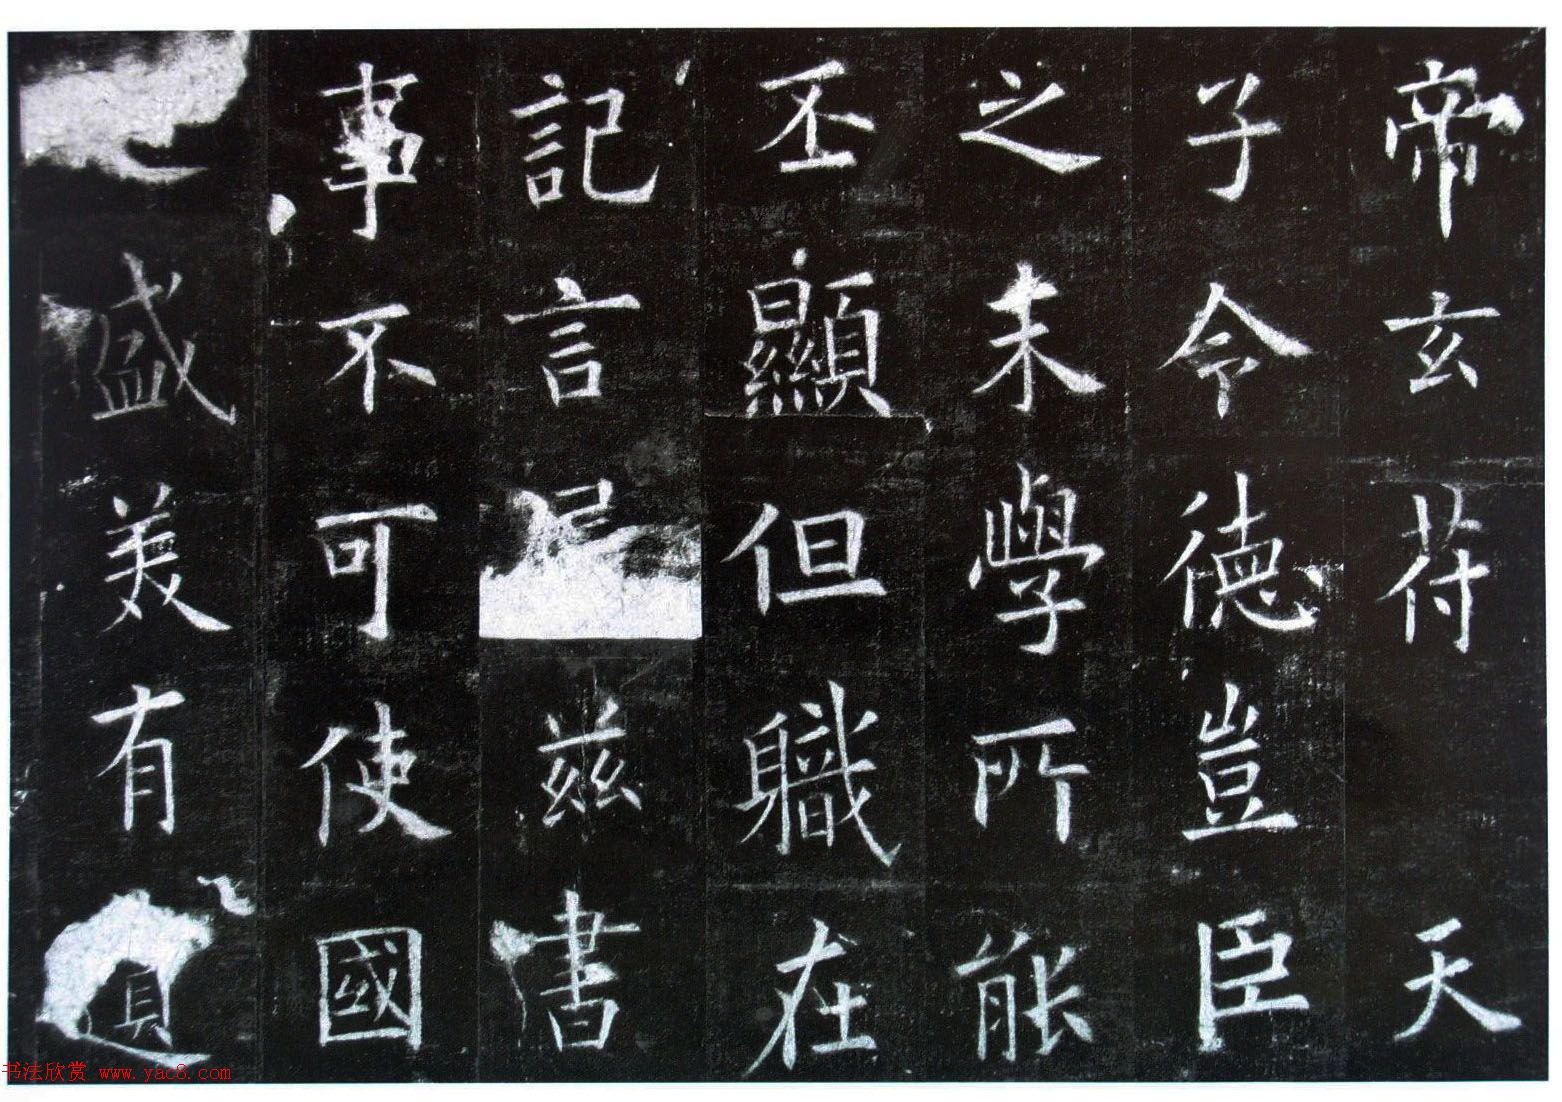 帝玄符天
子令德豈臣
之末學所能
丕顯但職在
記言屬茲書
事不可使國
之盛美有遺
书法欣赏 www.yac8.com